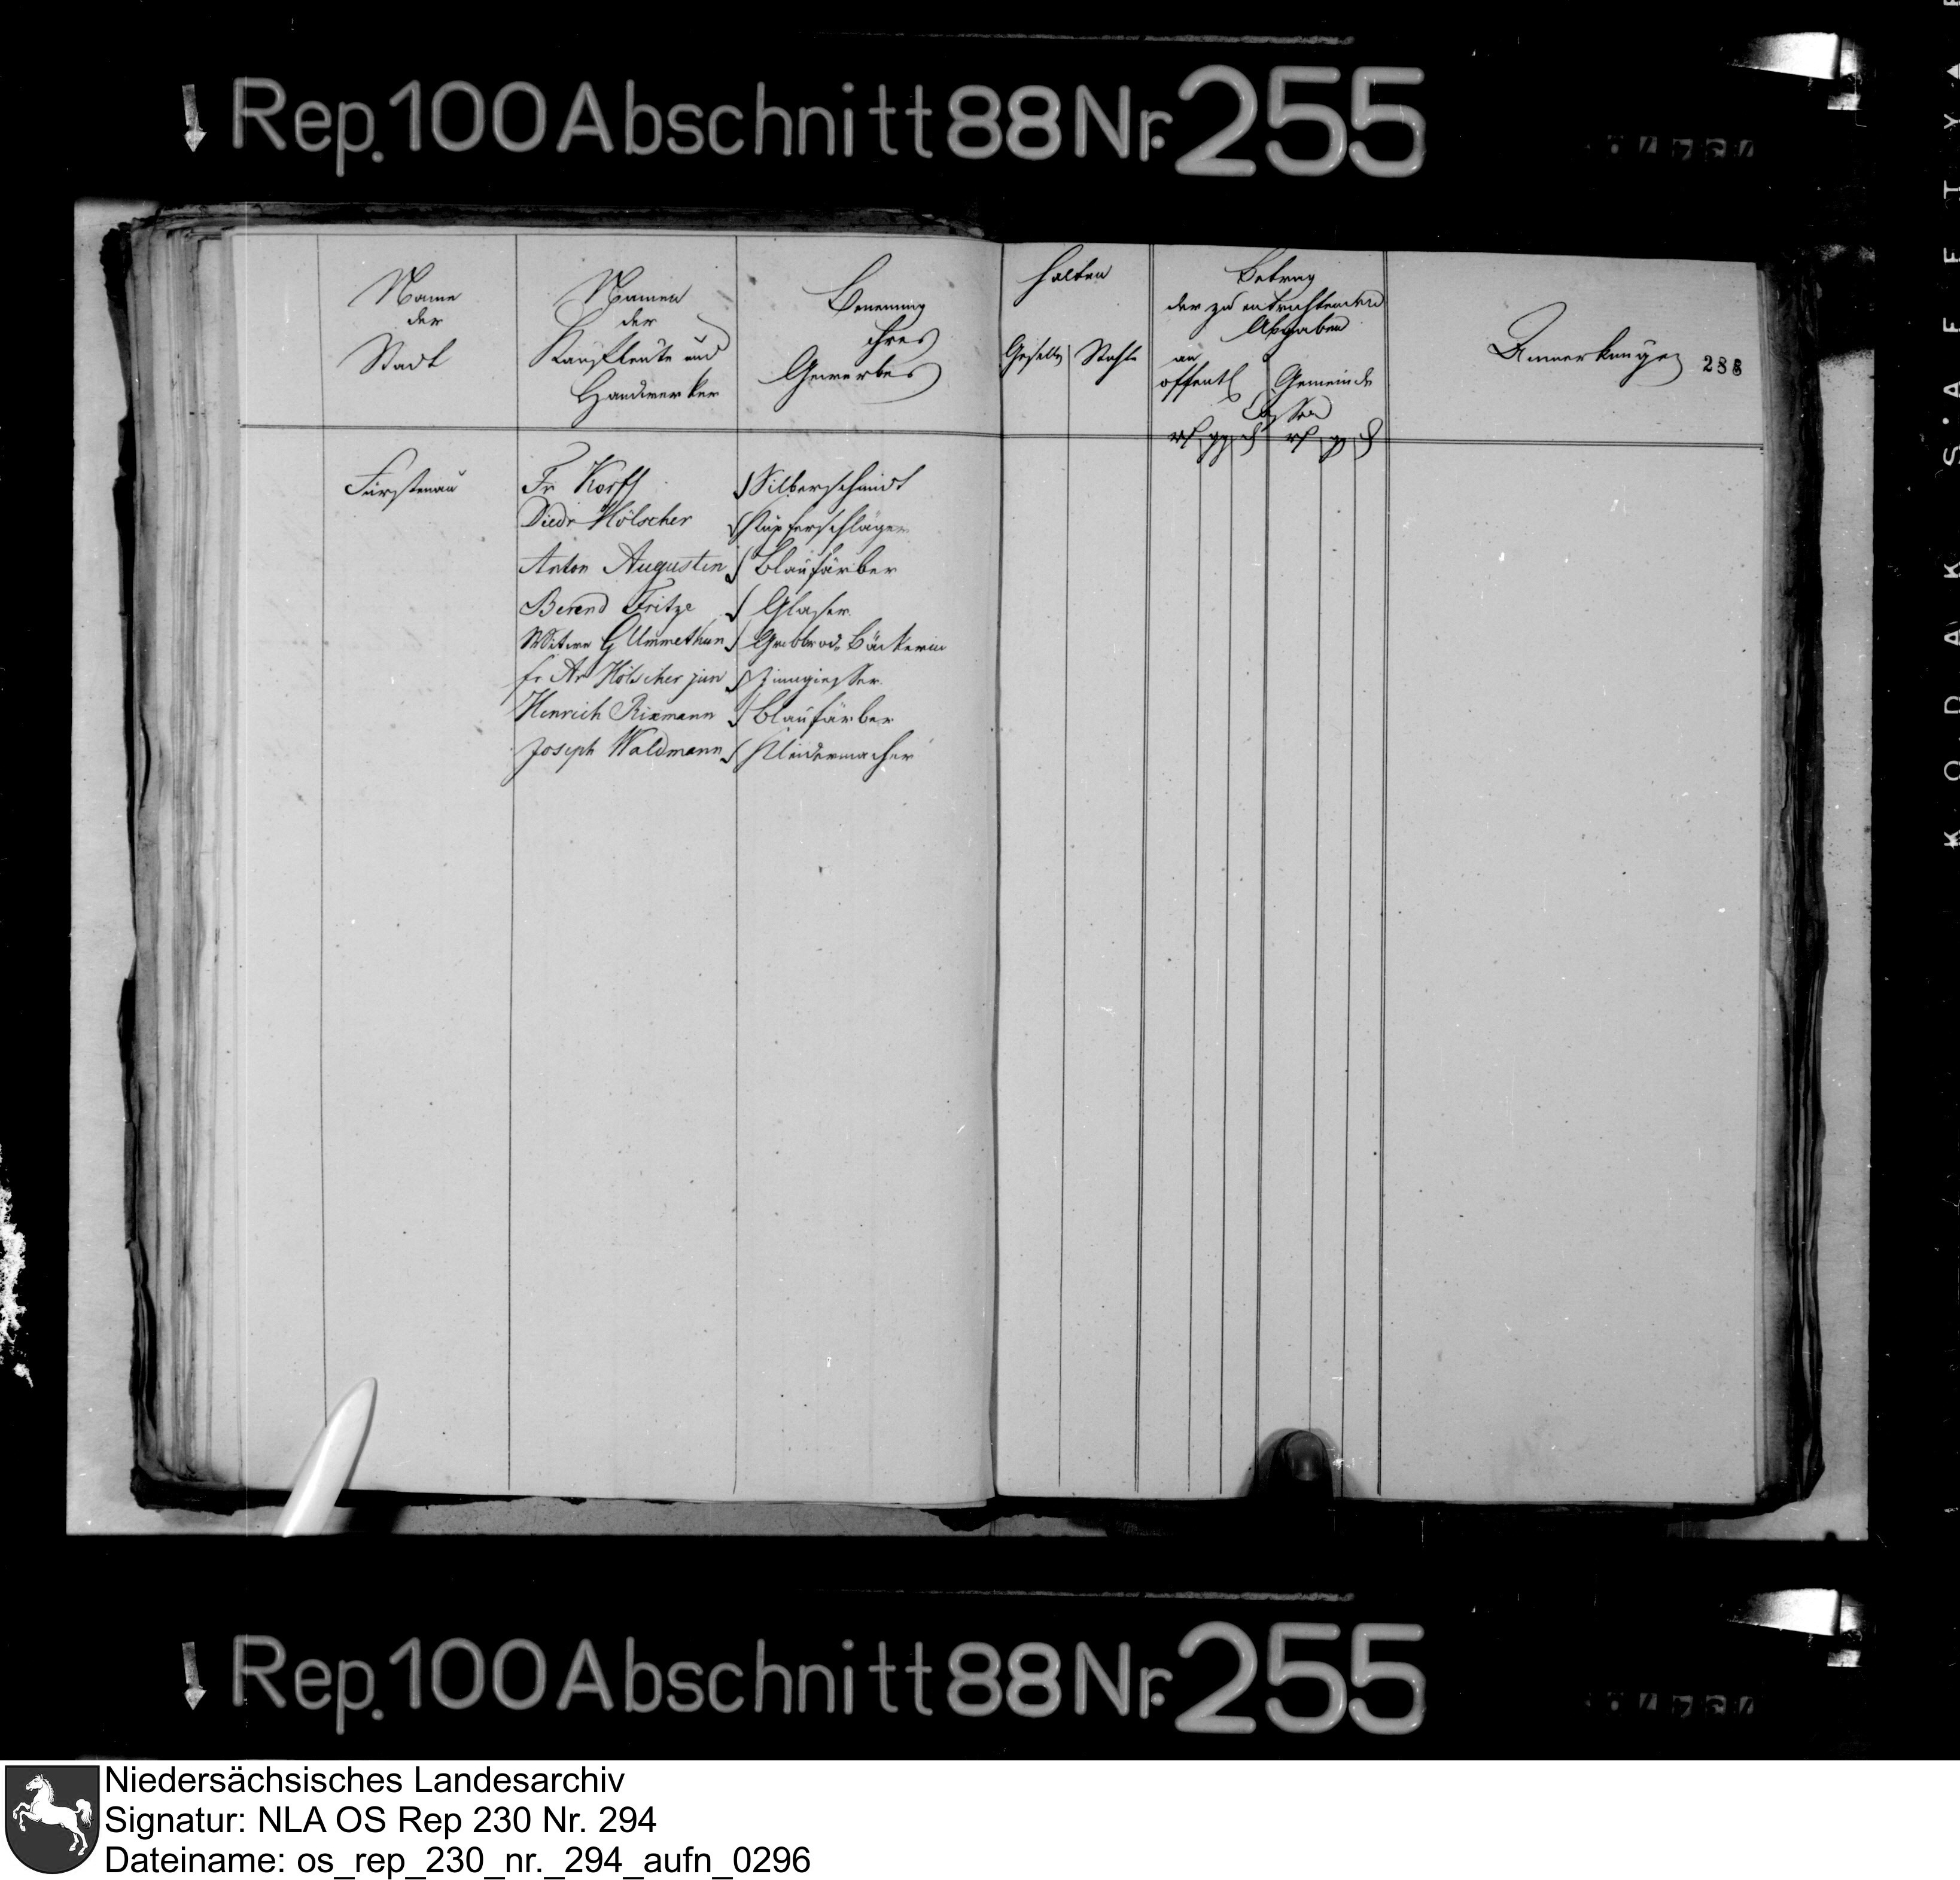 Rep. 100 Abschnitt 88 Nr. 255
Name
der
Stadt
Namen
der
Kaufleute und
Handwerker
Benennung
ihres
Gewerbes
halten
Gesellen
Betrag
der zu entrichtenden
Abgaben
an
öffentl
Gemeinde
Cassen
rt gg d rt gg d
Anmerkungen
288
Fürstenau Fr Korff Silberschmidt
Diedr Hölscher Kupferschläger
Anton Augustin Blaufärber
Berend Fritze Glaser
Wittwe G Ummethun Grobbrod Bäckerin
fr Ar Hölscher jun Zinngiesser
Henrich Rixmann Blaufärber
Joseph Waldmann Kleidermacher
KODAK SAFETY
Rep. 100 Abschnitt 88 Nr. 255
Niedersächsisches Landesarchiv
Signatur: NLA OS Rep 230 Nr. 294
Dateiname: os_rep_230_nr._294_aufn_0296